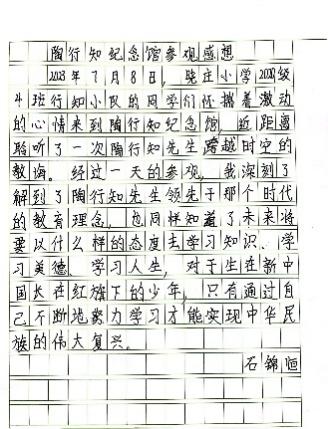 陶行知纪念馆参观感想
2023年7月8日，晓庄小学2020级
4班行知小队的同学们怀揣着激动
的心情来到陶行知纪念馆，近距离
聆听了一次陶行知先生跨越时空的
教诲。经过一天的参观，我深刻了
解到了陶行知先生领先于那个时代
的教育理念，也同样知道了未来将
要以什么样的态度去学习知识、学
习美德、学习人生，对于生在新中
国长在红旗下的少年，只有通过自
己不断地努力学习才能实现中华民
族的伟大复兴。
石锦恒